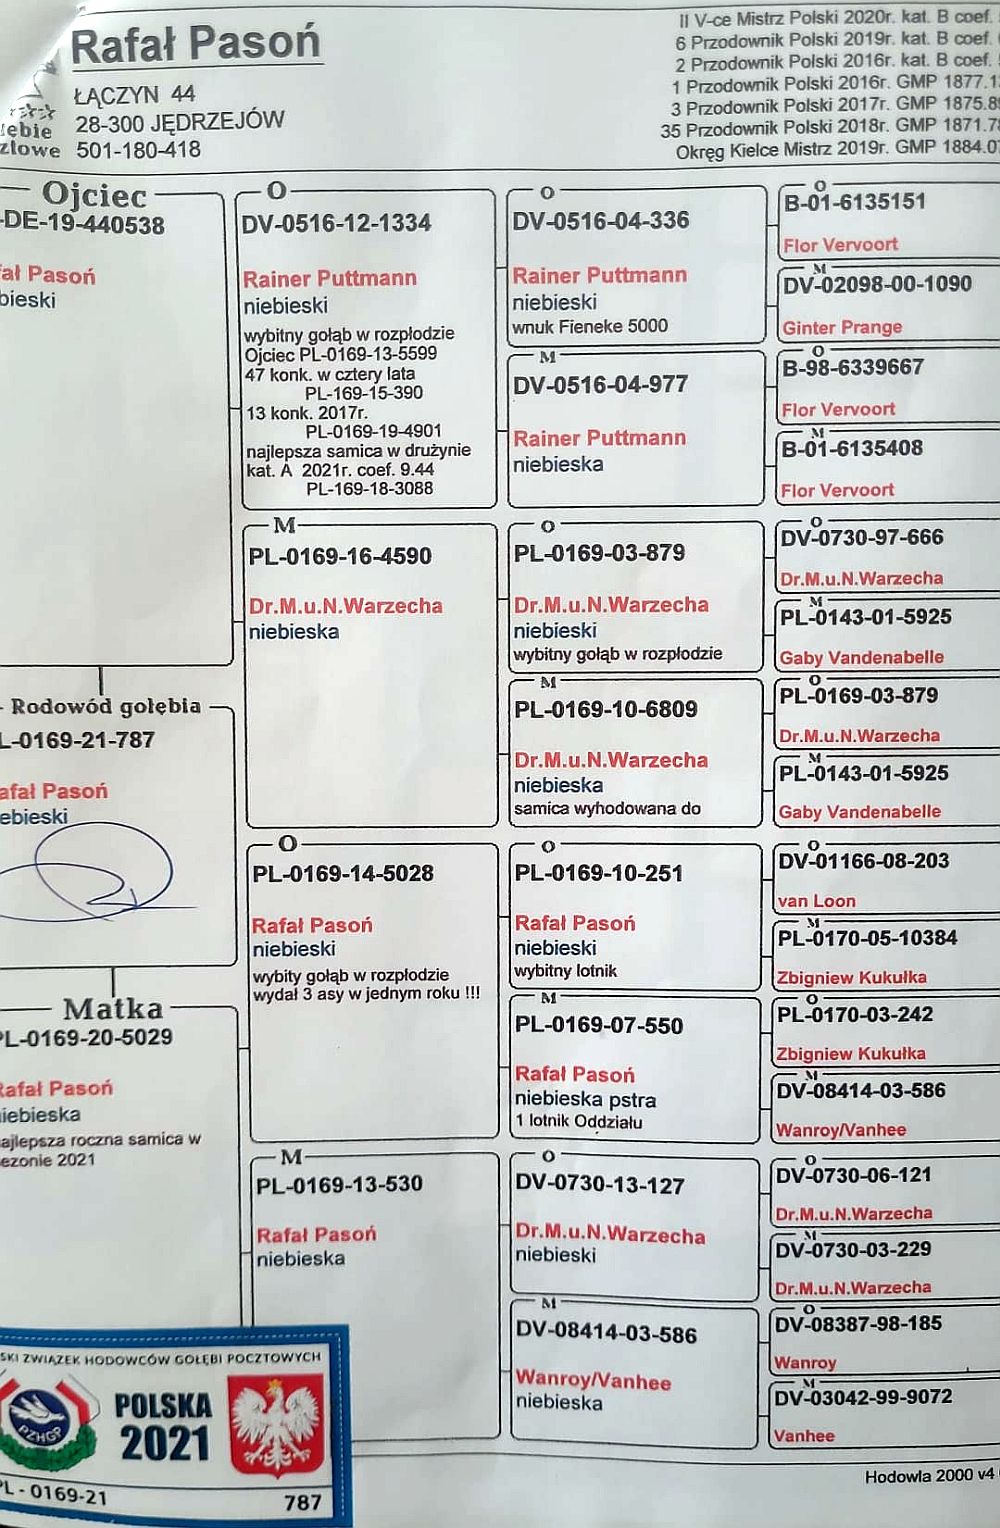 Rafał Pasoń
ŁĄCZYN 44
28-300 JĘDRZEJÓW
501-180-418
II V-ce Mistrz Polski 2020r. kat. B coef.
6 Przodownik Polski 2019r. kat. B coef.
2 Przodownik Polski 2016r. kat. B coef.
1 Przodownik Polski 2016r. GMP 1877.1
3 Przodownik Polski 2017r. GMP 1875.8
35 Przodownik Polski 2018r. GMP 1871.7
Okręg Kielce Mistrz 2019r. GMP 1884.0
Ojciec
-DE-19-440538
fał Pasoń
bieski
Rodowód gołębia
L-0169-21-787
afał Pasoń
ebieski
Matka
PL-0169-20-5029
Rafał Pasoń
niebieska
ajlepsza roczna samica w
ezonie 2021
O
DV-0516-12-1334
Rainer Puttmann
niebieski
wybitny gołąb w rozpłodzie
Ojciec PL-0169-13-5599
47 konk. w cztery lata
PL-169-15-390
13 konk. 2017r.
PL-0169-19-4901
najlepsza samica w drużynie
kat. A 2021r. coef. 9.44
PL-169-18-3088
M
PL-0169-16-4590
Dr.M.u.N.Warzecha
niebieska
O
PL-0169-14-5028
Rafał Pasoń
niebieski
wybity gołąb w rozpłodzie
wydał 3 asy w jednym roku !!!
M
PL-0169-13-530
Rafał Pasoń
niebieska
O
DV-0516-04-336
Rainer Puttmann
niebieski
wnuk Fieneke 5000
M
DV-0516-04-977
Rainer Puttmann
niebieska
O
PL-0169-03-879
Dr.M.u.N.Warzecha
niebieski
wybitny gołąb w rozpłodzie
M
PL-0169-10-6809
Dr.M.u.N.Warzecha
niebieska
samica wyhodowana do
O
PL-0169-10-251
Rafał Pasoń
niebieski
wybitny lotnik
M
PL-0169-07-550
Rafał Pasoń
niebieska pstra
1 lotnik Oddziału
O
DV-0730-13-127
Dr.M.u.N.Warzecha
niebieski
M
DV-08414-03-586
Wanroy/Vanhee
niebieska
O
B-01-6135151
Flor Vervoort
M
DV-02098-00-1090
Ginter Prange
O
B-98-6339667
Flor Vervoort
M
B-01-6135408
Flor Vervoort
O
DV-0730-97-666
Dr.M.u.N.Warzecha
M
PL-0143-01-5925
Gaby Vandenabelle
O
PL-0169-03-879
Dr.M.u.N.Warzecha
M
PL-0143-01-5925
Gaby Vandenabelle
O
DV-01166-08-203
van Loon
M
PL-0170-05-10384
Zbigniew Kukułka
O
PL-0170-03-242
Zbigniew Kukułka
M
DV-08414-03-586
Wanroy/Vanhee
O
DV-0730-06-121
Dr.M.u.N.Warzecha
M
DV-0730-03-229
Dr.M.u.N.Warzecha
O
DV-08387-98-185
Wanroy
M
DV-03042-99-9072
Vanhee
SKI ZWIĄZEK HODOWCÓW GOŁĘBI POCZTOWYCH
PZHGP
POLSKA
2021
PL - 0169-21
787
Hodowla 2000 v4